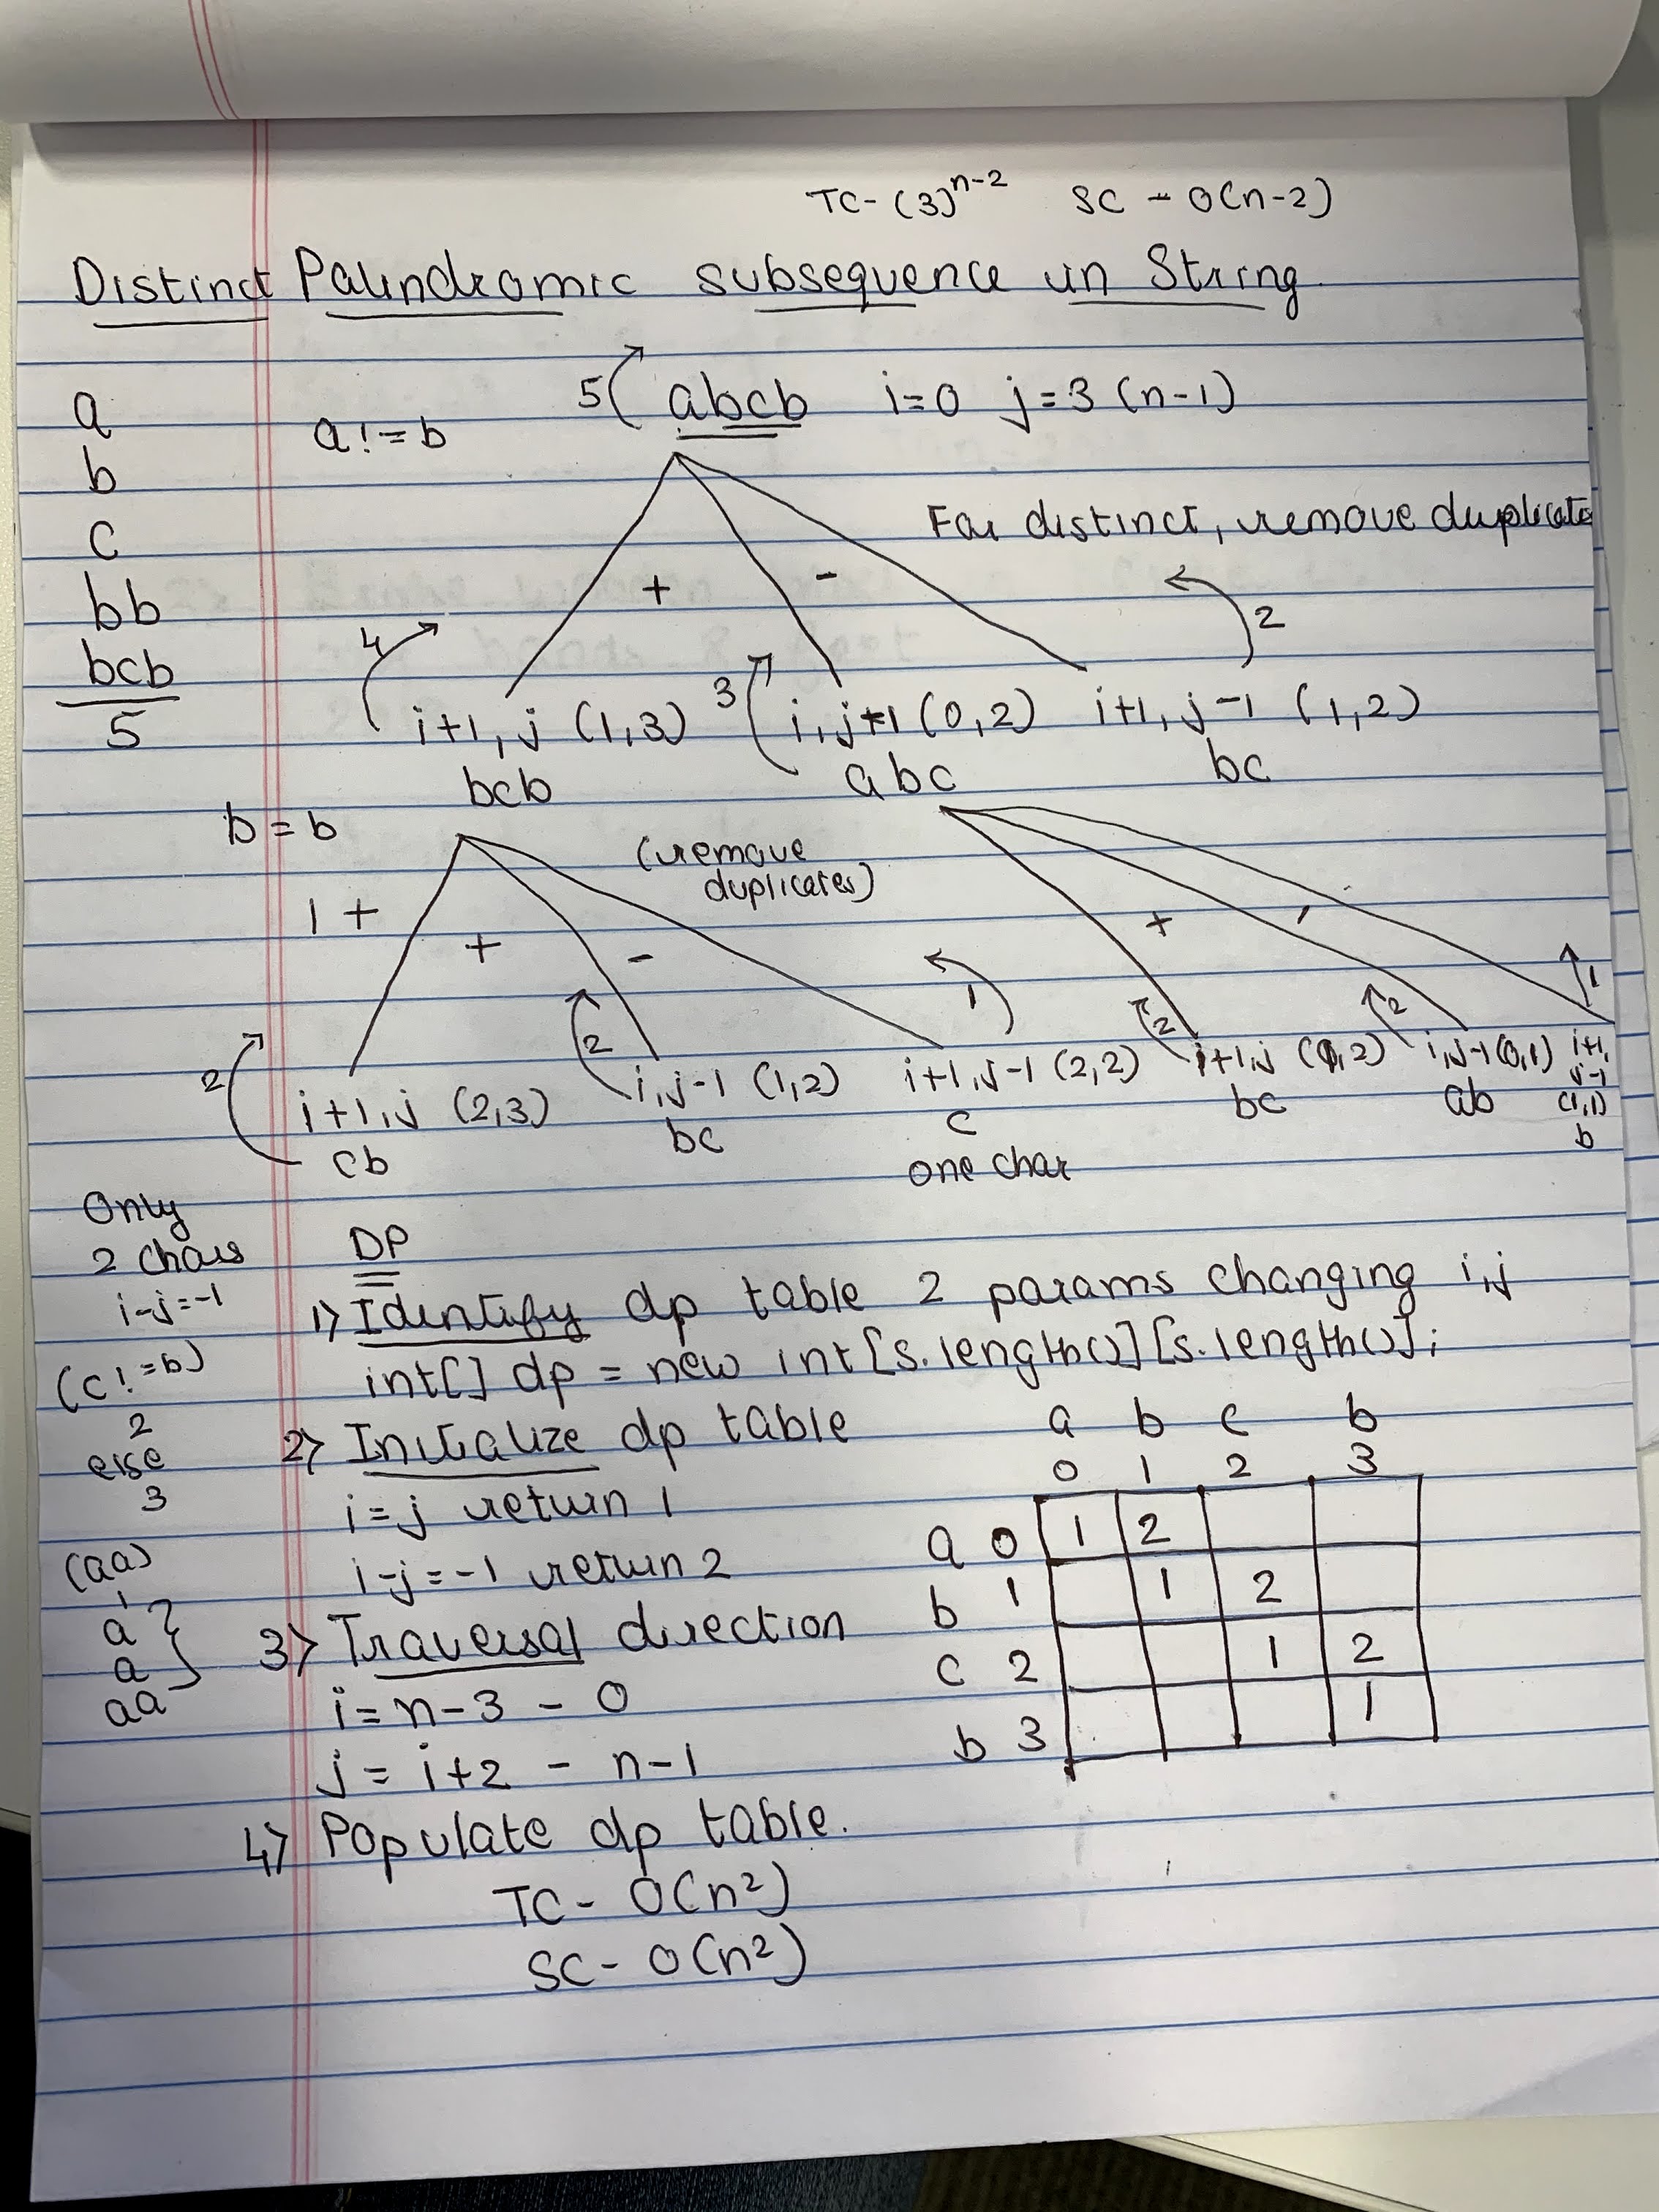 TC- (3)^n-2 SC - O(n-2)
Distinct Palindromic subsequence in String
a
b
c
bb
bcb
5
5 abcb i=0 j=3 (n-1)
a != b
For distinct, remove duplicates
+ -
4 3 2
i+1, j (1,3) i, j-1 (0,2) i+1, j-1 (1,2)
bcb abc bc
b = b (remove
duplicates)
1 + + - + -
2 2 1 2 2 1
i+1, j (2,3) i, j-1 (1,2) i+1, j-1 (2,2) i+1, j (1,2) i, j-1 (0,1) i+1,
j-1
(1,1)
b
cb bc c bc ab
one char
Only
2 chars
i-j=-1
(c != b)
2
else
3
(aa)
a
a
aa
DP
1) Identify dp table 2 params changing i,j
int[] dp = new int[s.length()][s.length()];
2) Initialize dp table
i = j return 1
i-j = -1 return 2
3) Traversal direction
i = n-3 - 0
j = i+2 - n-1
4) Populate dp table.
TC- O(n²)
SC- O(n²)
a b c b
0 1 2 3
a 0 1 2
b 1 1 2
c 2 1 2
b 3 1